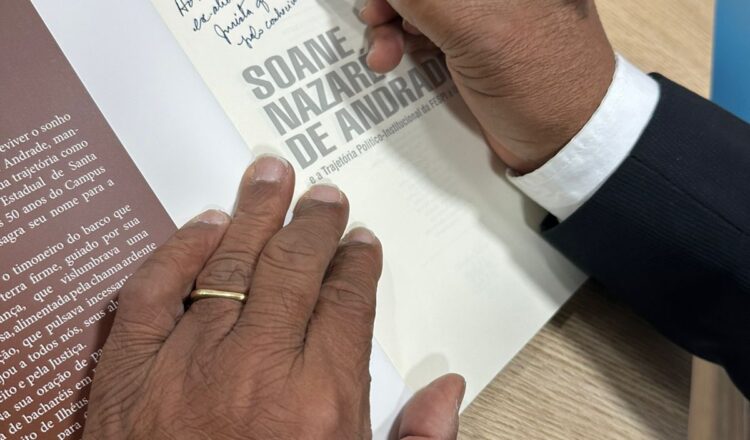 eviver o sonho
Andrade, man-
na trajetória como
Estadual de Santa
s 50 anos do Campus
sagra seu nome para a
o timoneiro do barco que
terra firme, guiado por sua
ança, que vislumbrava uma
sa, alimentada pela chama ardente
ção, que pulsava incessante
jou a todos nós, seus
ito e pela Justiça.
Na sua oração de
de bacharéis em
ito de Ilhéus
para
jurista
pelo
SOANE
NAZARÉ
DE ANDRADE
e a Trajetória Político-Institucional da FESPI